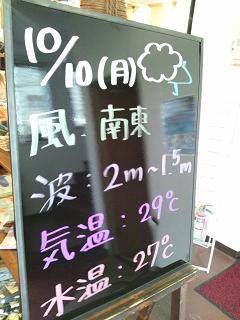 10/10(月)
風:南東
波:2m~1.5m
気温:29℃
水温:27℃